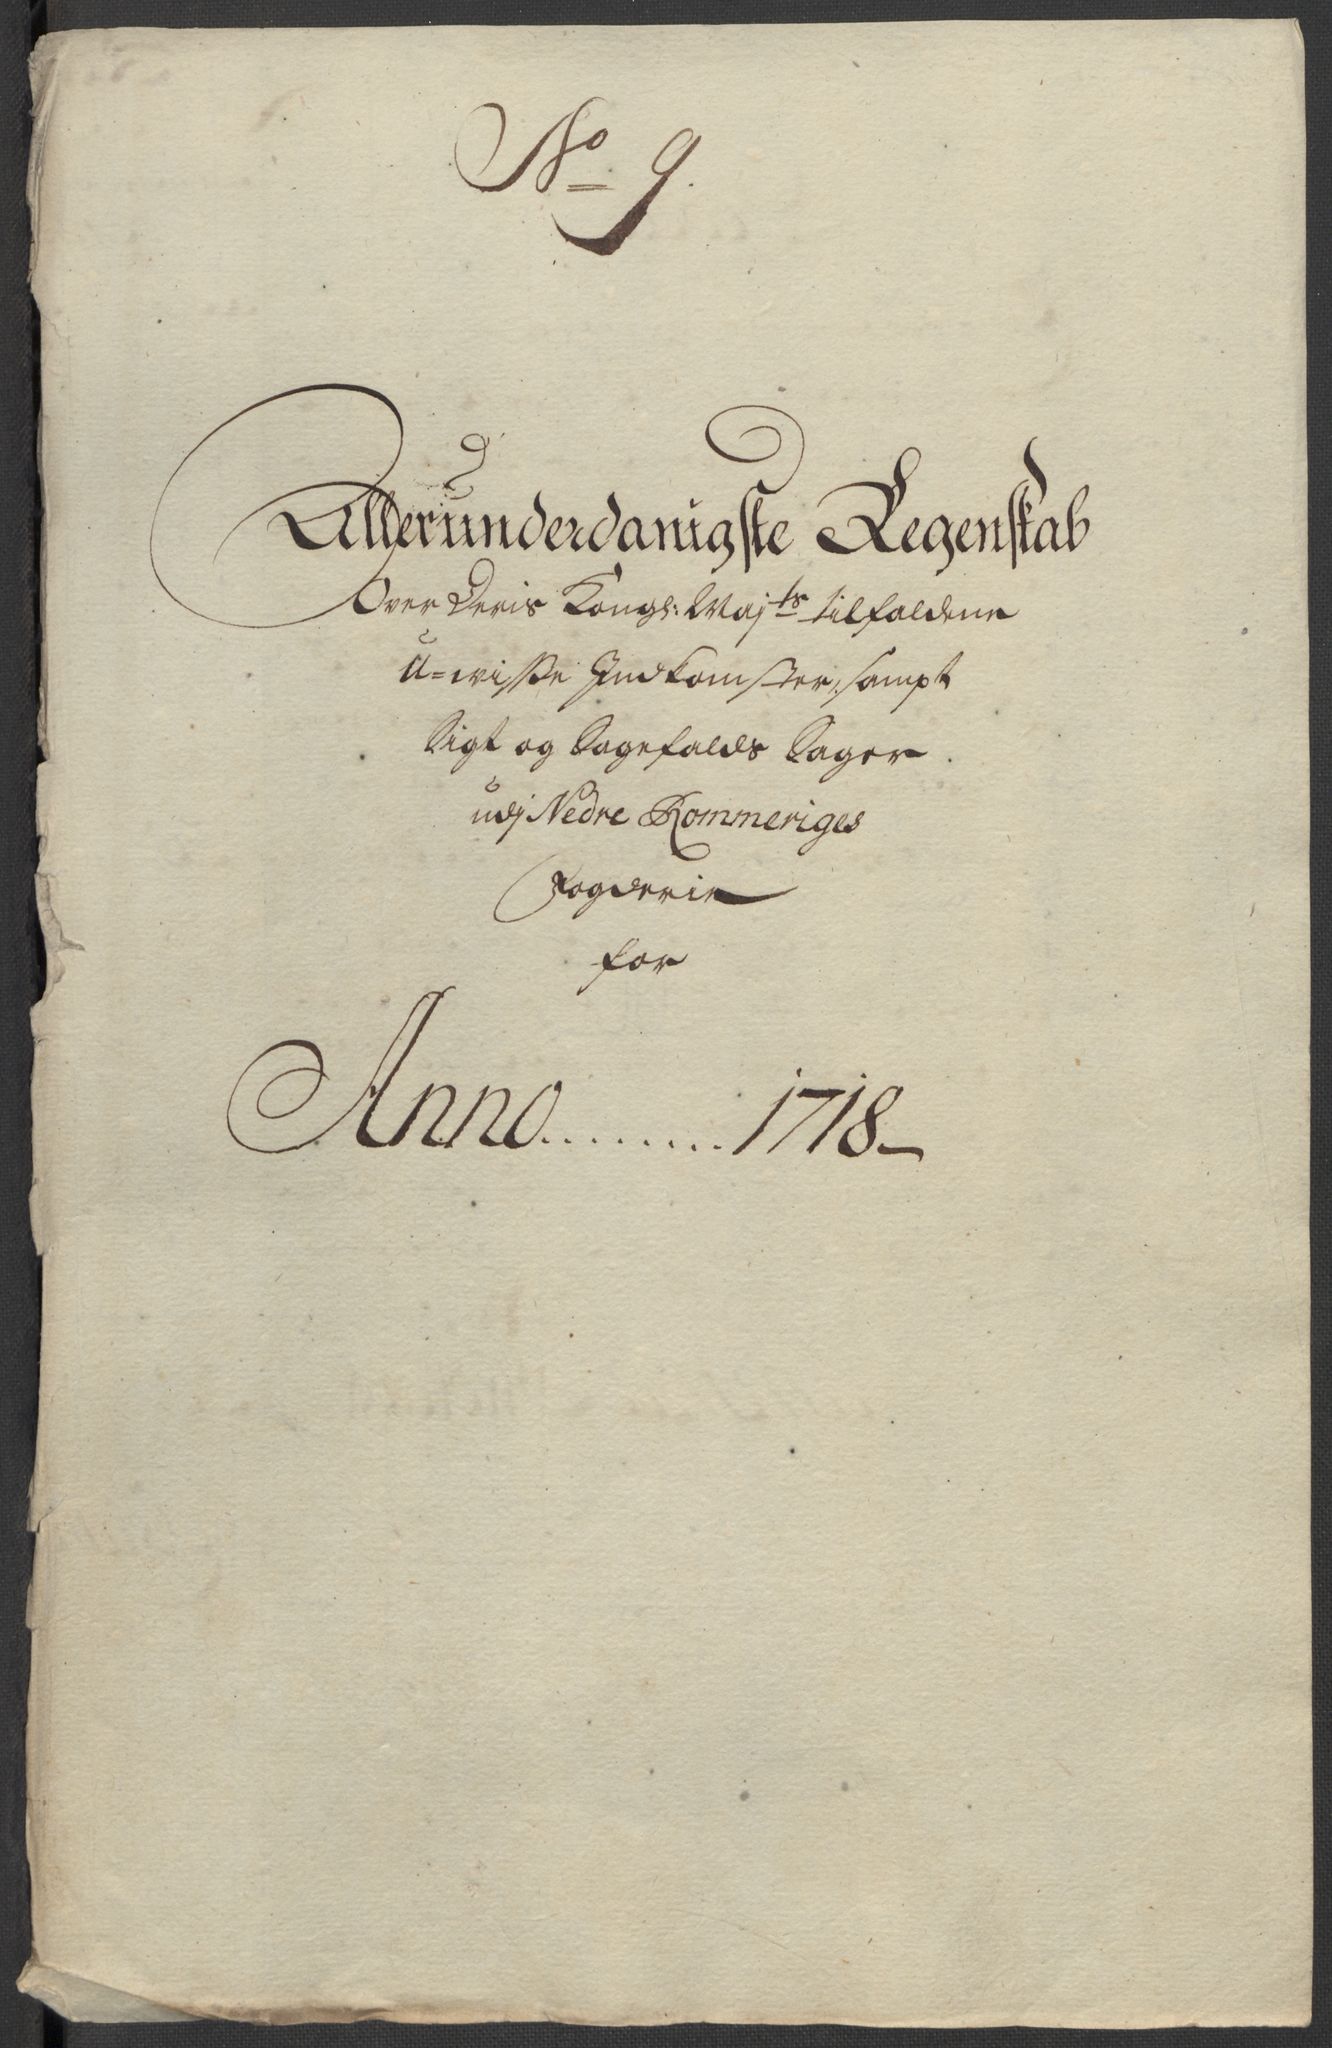 No 9.
Allerunderdanigste Regenskab
Over Deris Kongl: Majts tilfaldene
U=wisse Indkomster, sampt
Sigt og Sagefalds Sager
udj Nedre Rommeriges
Fogderie
for
Anno ........ 1718